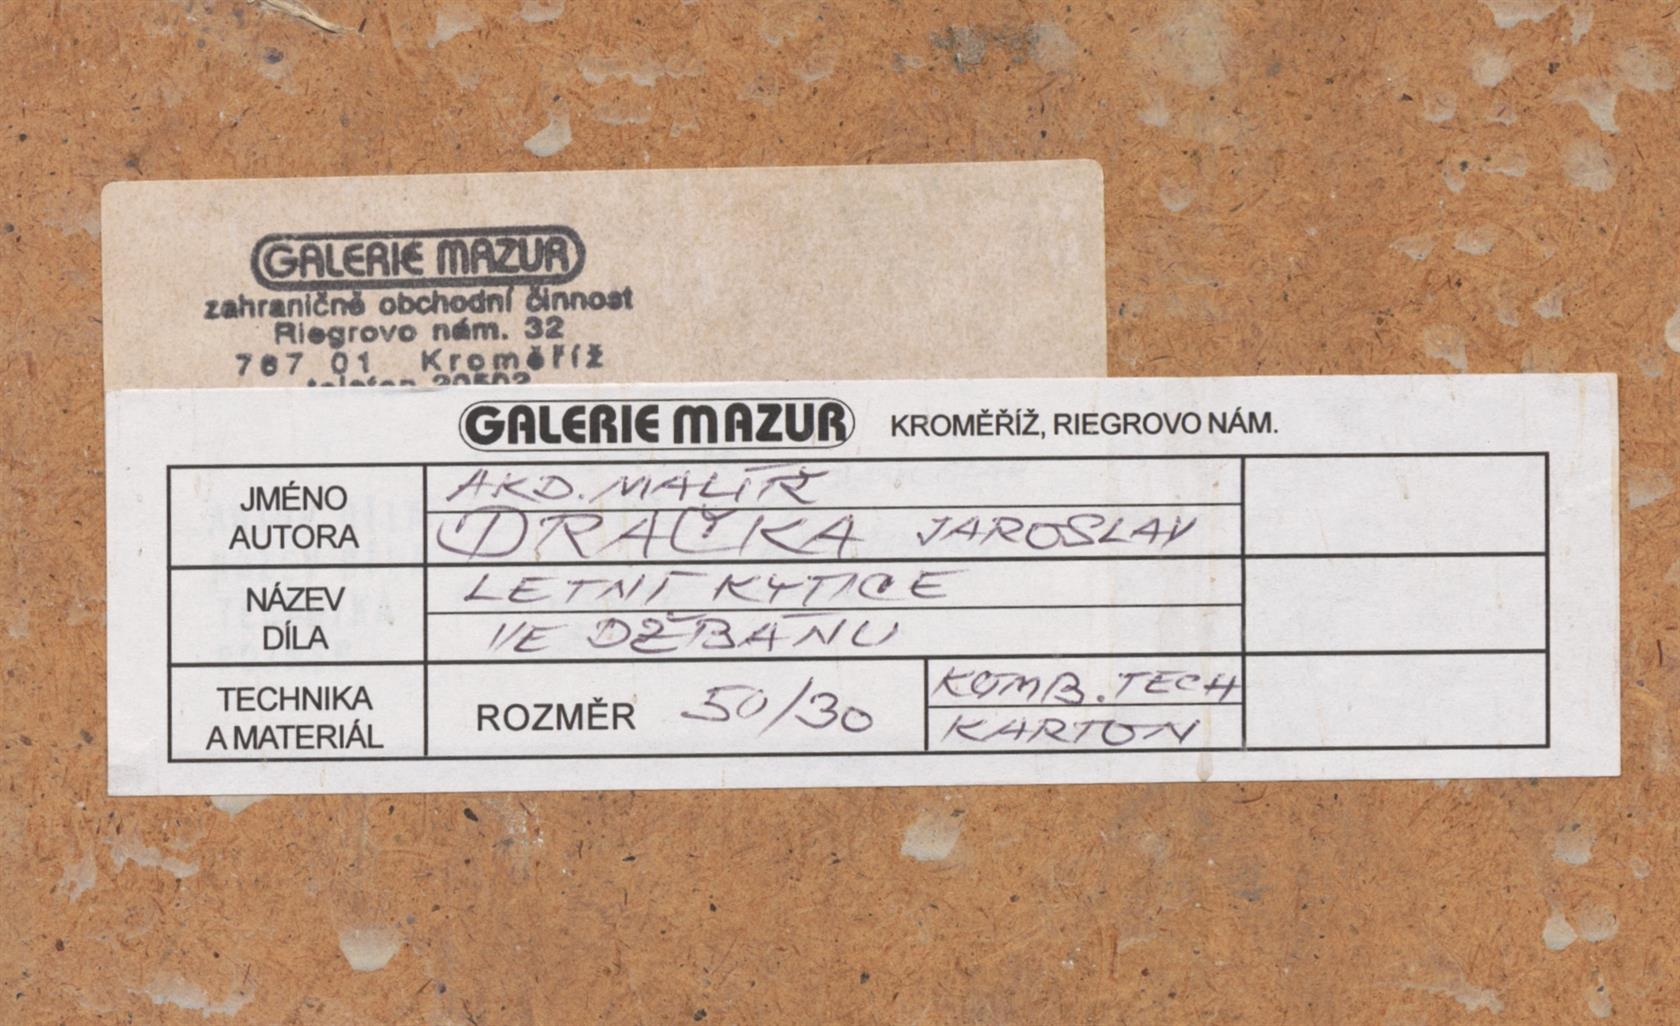 GALERIE MAZUR
zahraničně obchodní činnost
Riegrovo nám. 32
767 01 Kroměříž
telefon 20502
GALERIE MAZUR KROMĚŘÍŽ, RIEGROVO NÁM.
JMÉNO AUTORA
AKD. MALÍŘ
DRAČKA JAROSLAV
NÁZEV DÍLA
LETNÍ KYTICE
VE DŽBÁNU
TECHNIKA A MATERIÁL
ROZMĚR 50/30
KOMB. TECH
KARTON